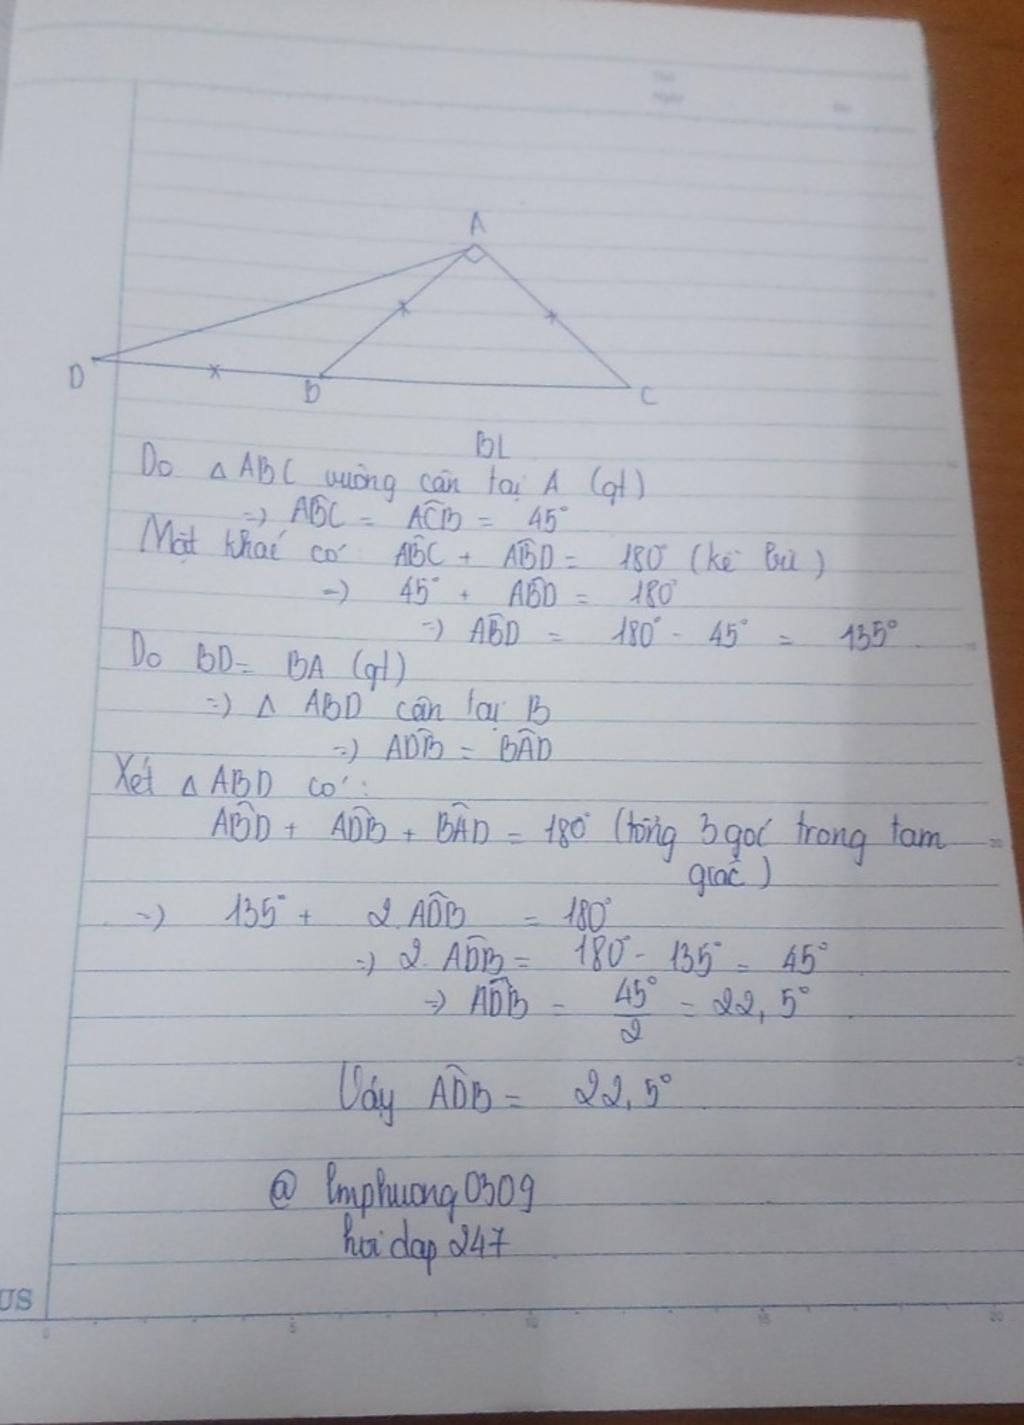 A
D
B
C
BL
Do △ABC vuông cân tại A (gt)
=) AB̂C = AĈB = 45°
Mặt khác có AB̂C + AB̂D = 180° (kề bù)
=) 45° + AB̂D = 180°
=) AB̂D = 180° - 45° = 135°
Do BD = BA (gt)
=) △ ABD cân tại B
=) AD̂B = BÂD
Xét △ABD có:
AB̂D + AD̂B + BÂD = 180° (tổng 3 góc trong tam
giác)
=) 135° + 2.AD̂B = 180°
=) 2.AD̂B = 180° - 135° = 45°
=) AD̂B = 45°/2 = 22,5°
Vậy AD̂B = 22,5°
@ lmphuong0309
hoidap247
US
0 5 10 15 20